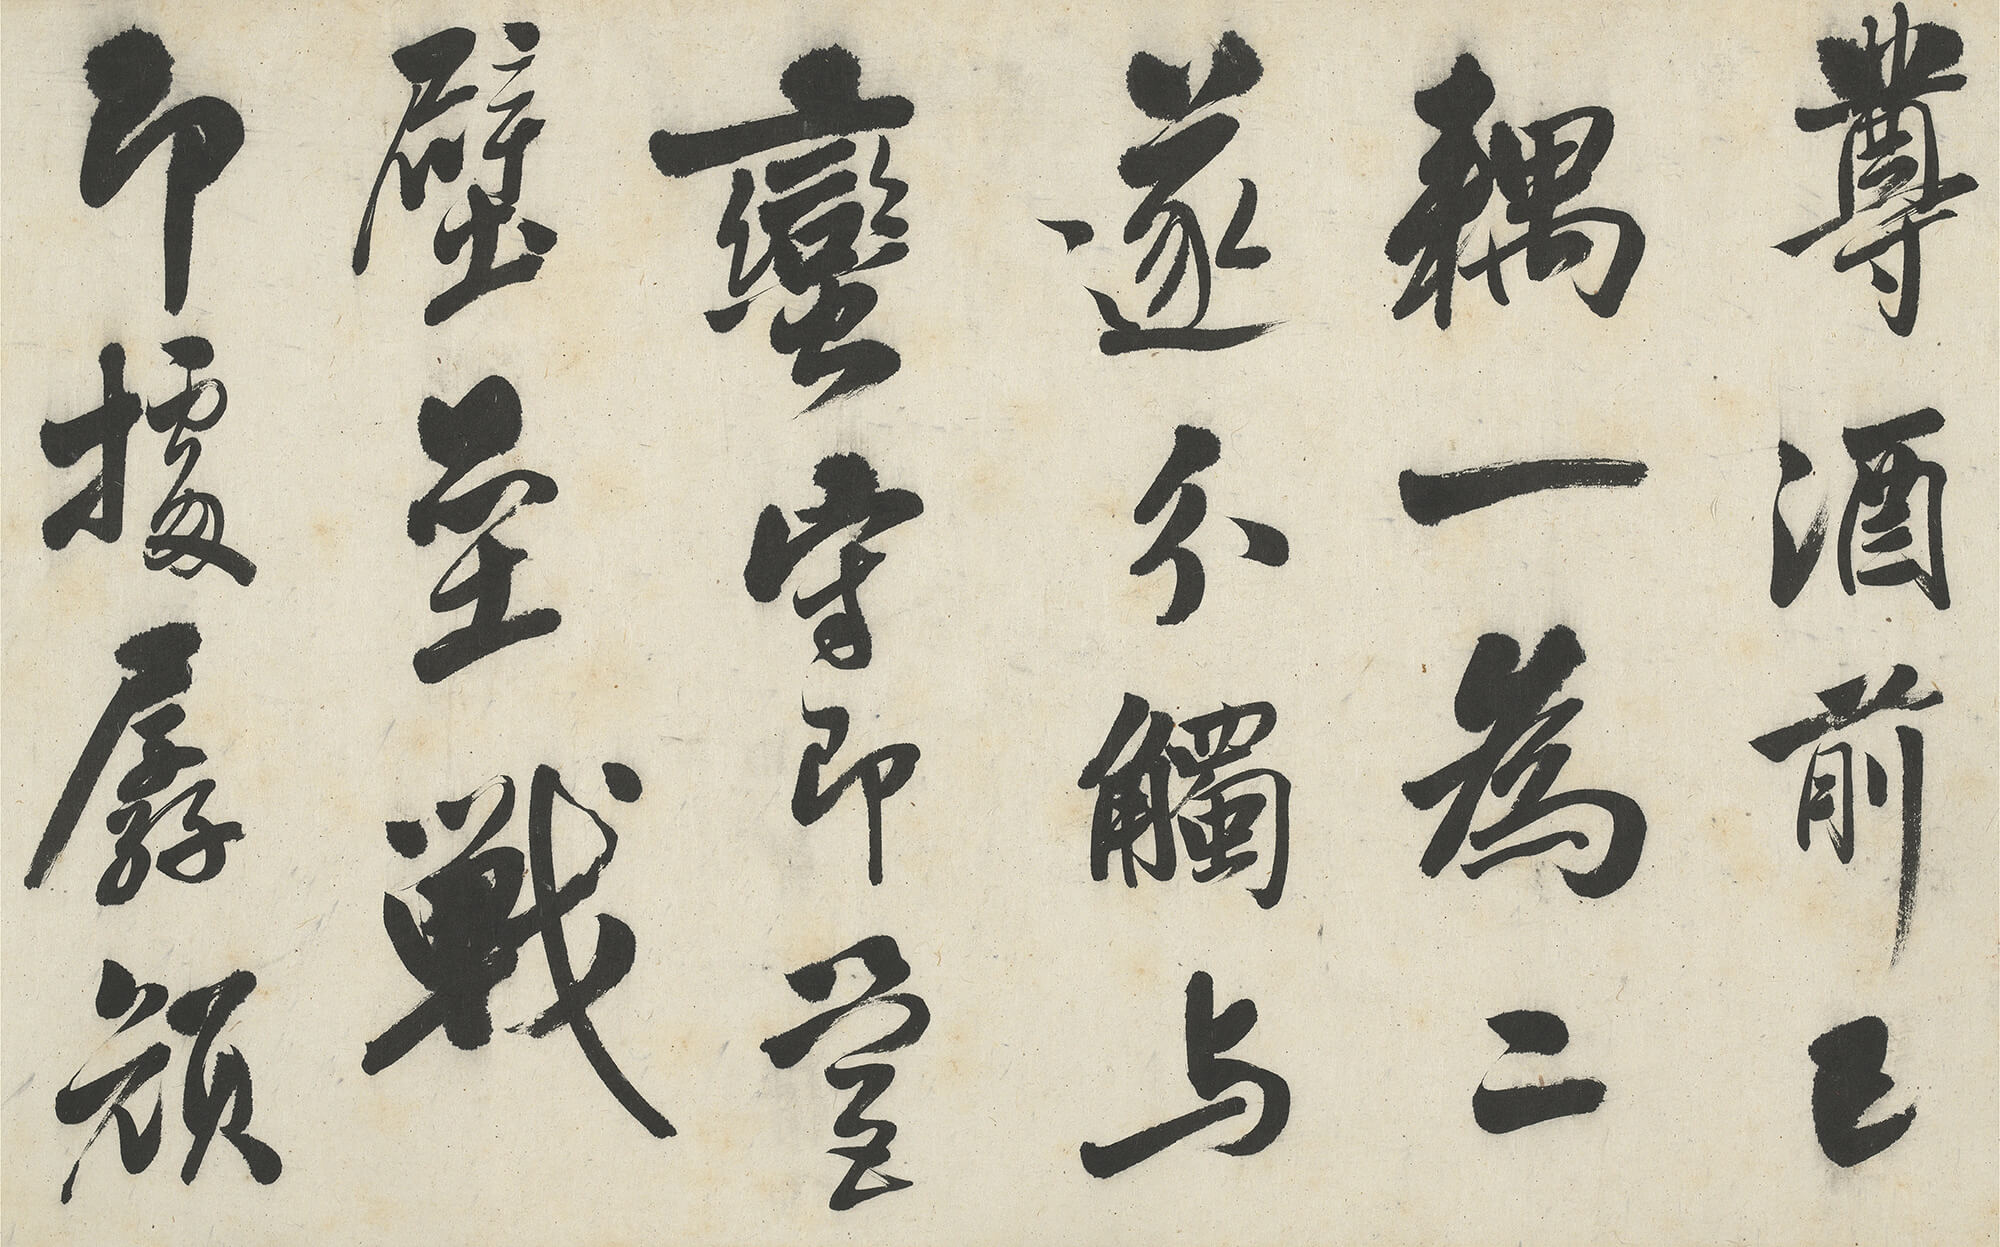 尊酒前已
耦一為二
遂分觸与
蠻守即營
壁垒戰
即據孱顔